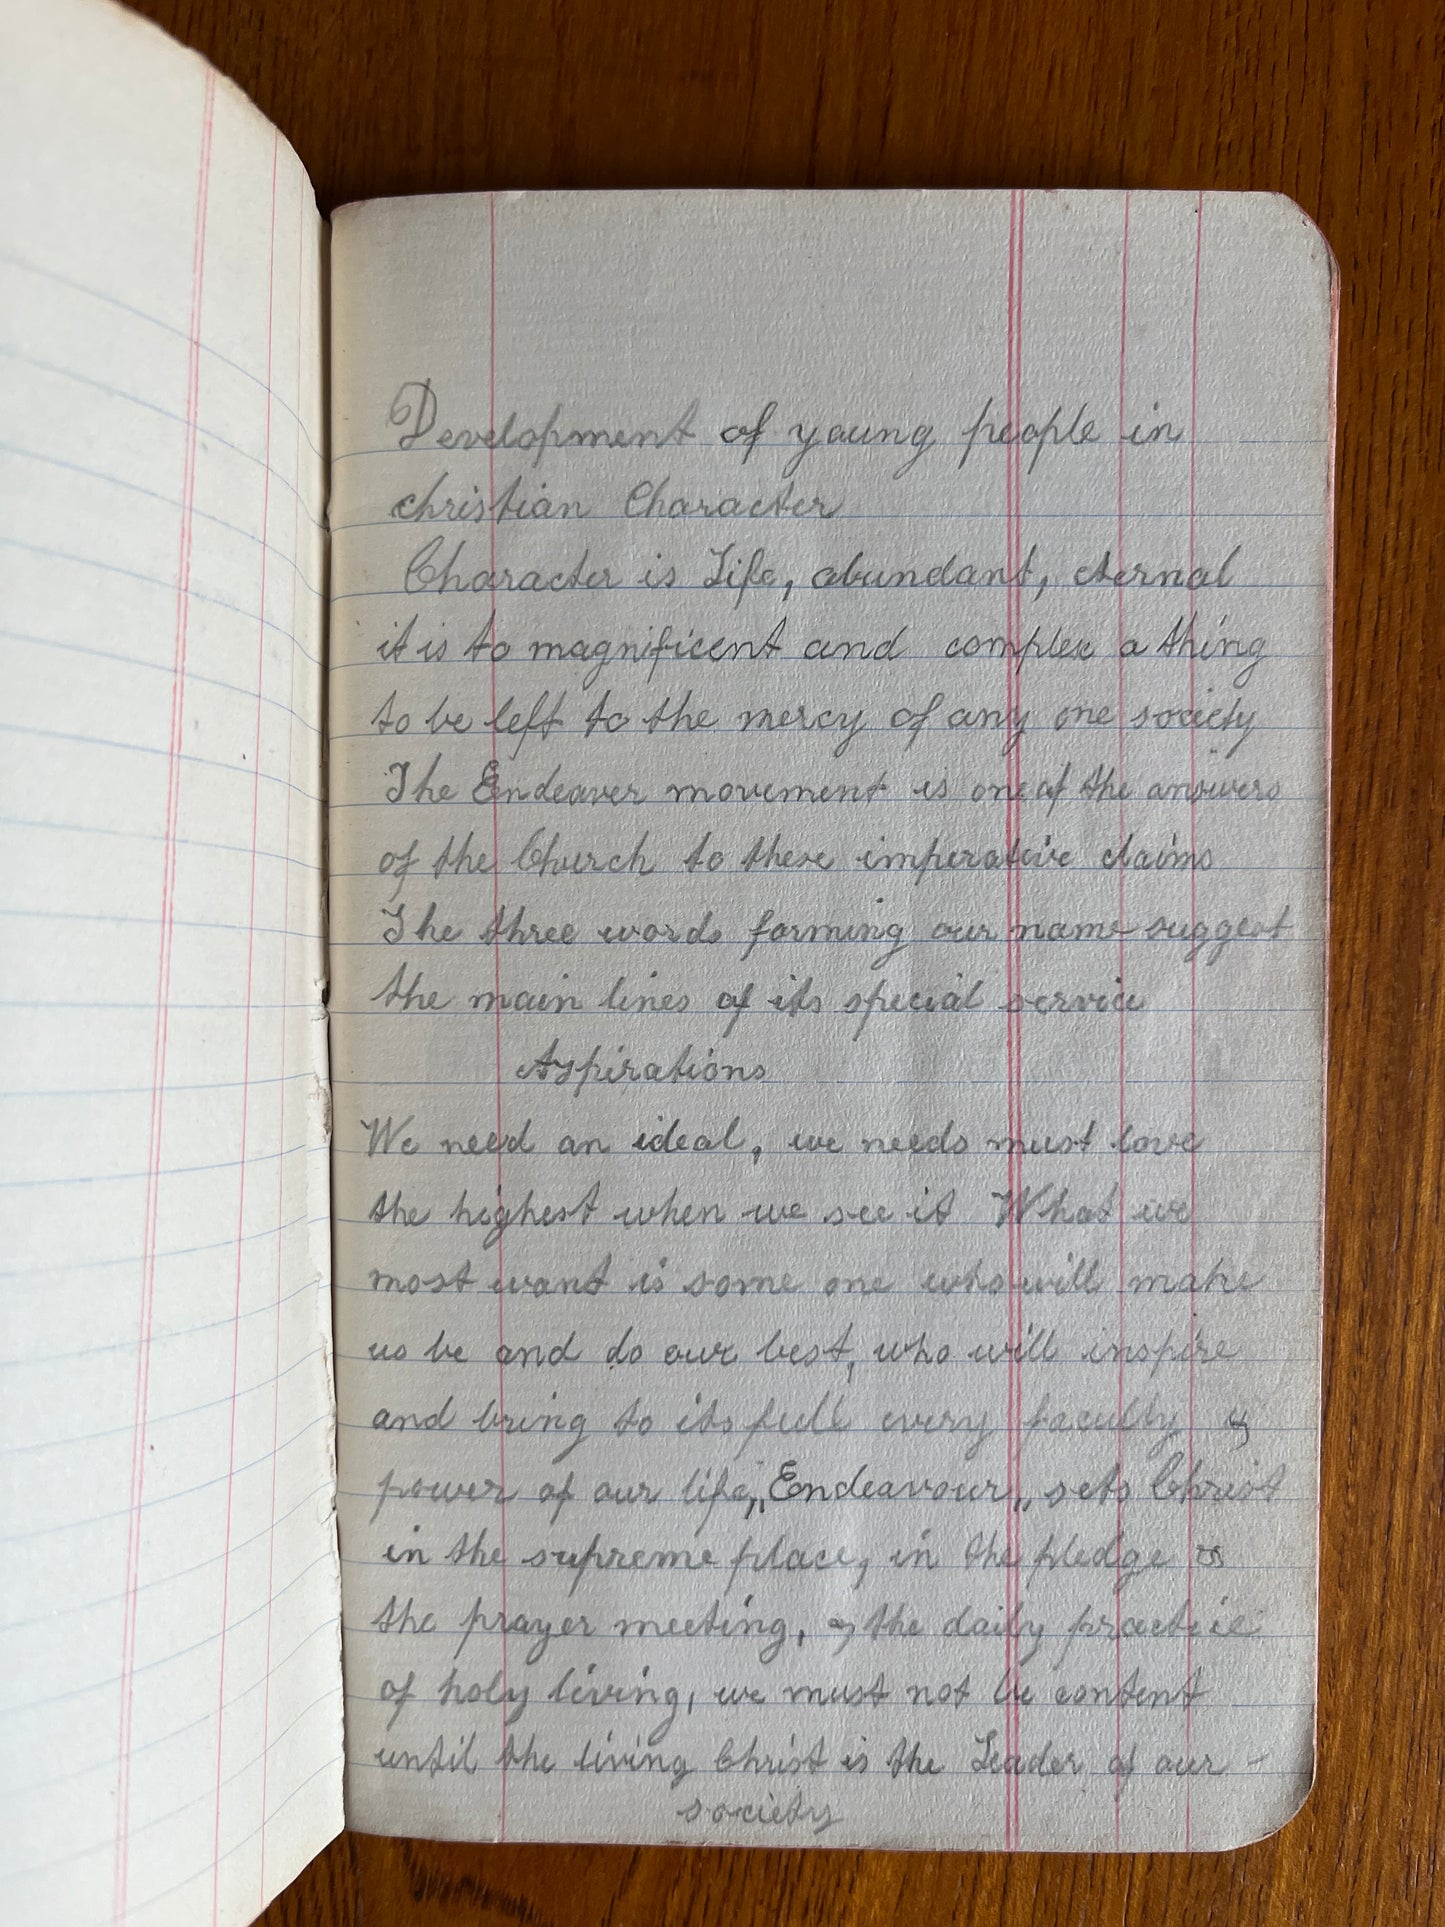 Development of young people in
christian Character
Character is Life, abundant, eternal
it is to magnificent and complex a thing
to be left to the mercy of any one society
The Endeaver movement is one of the answers
of the Church to these imperative claims
The three words forming our name suggest
the main lines of its special service
Aspirations
We need an ideal, we needs must love
the highest when we see it What we
most want is some one who will make
us be and do our best, who will inspire
and bring to its full every faculty &
power of our life, „Endeavour„ sets Christ
in the supreme place, in the pledge &
the prayer meeting, & the daily practice
of holy living, we must not be content
until the living Christ is the Leader of our -
society